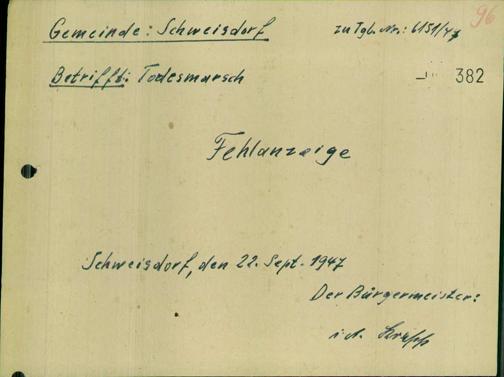 96
Gemeinde: Schweisdorf zu Tgb. Nr.: 6151/47
Betrifft: Todesmarsch
382
Fehlanzeige
Schweisdorf, den 22. Sept. 1947
Der Bürgermeister:
i.A.